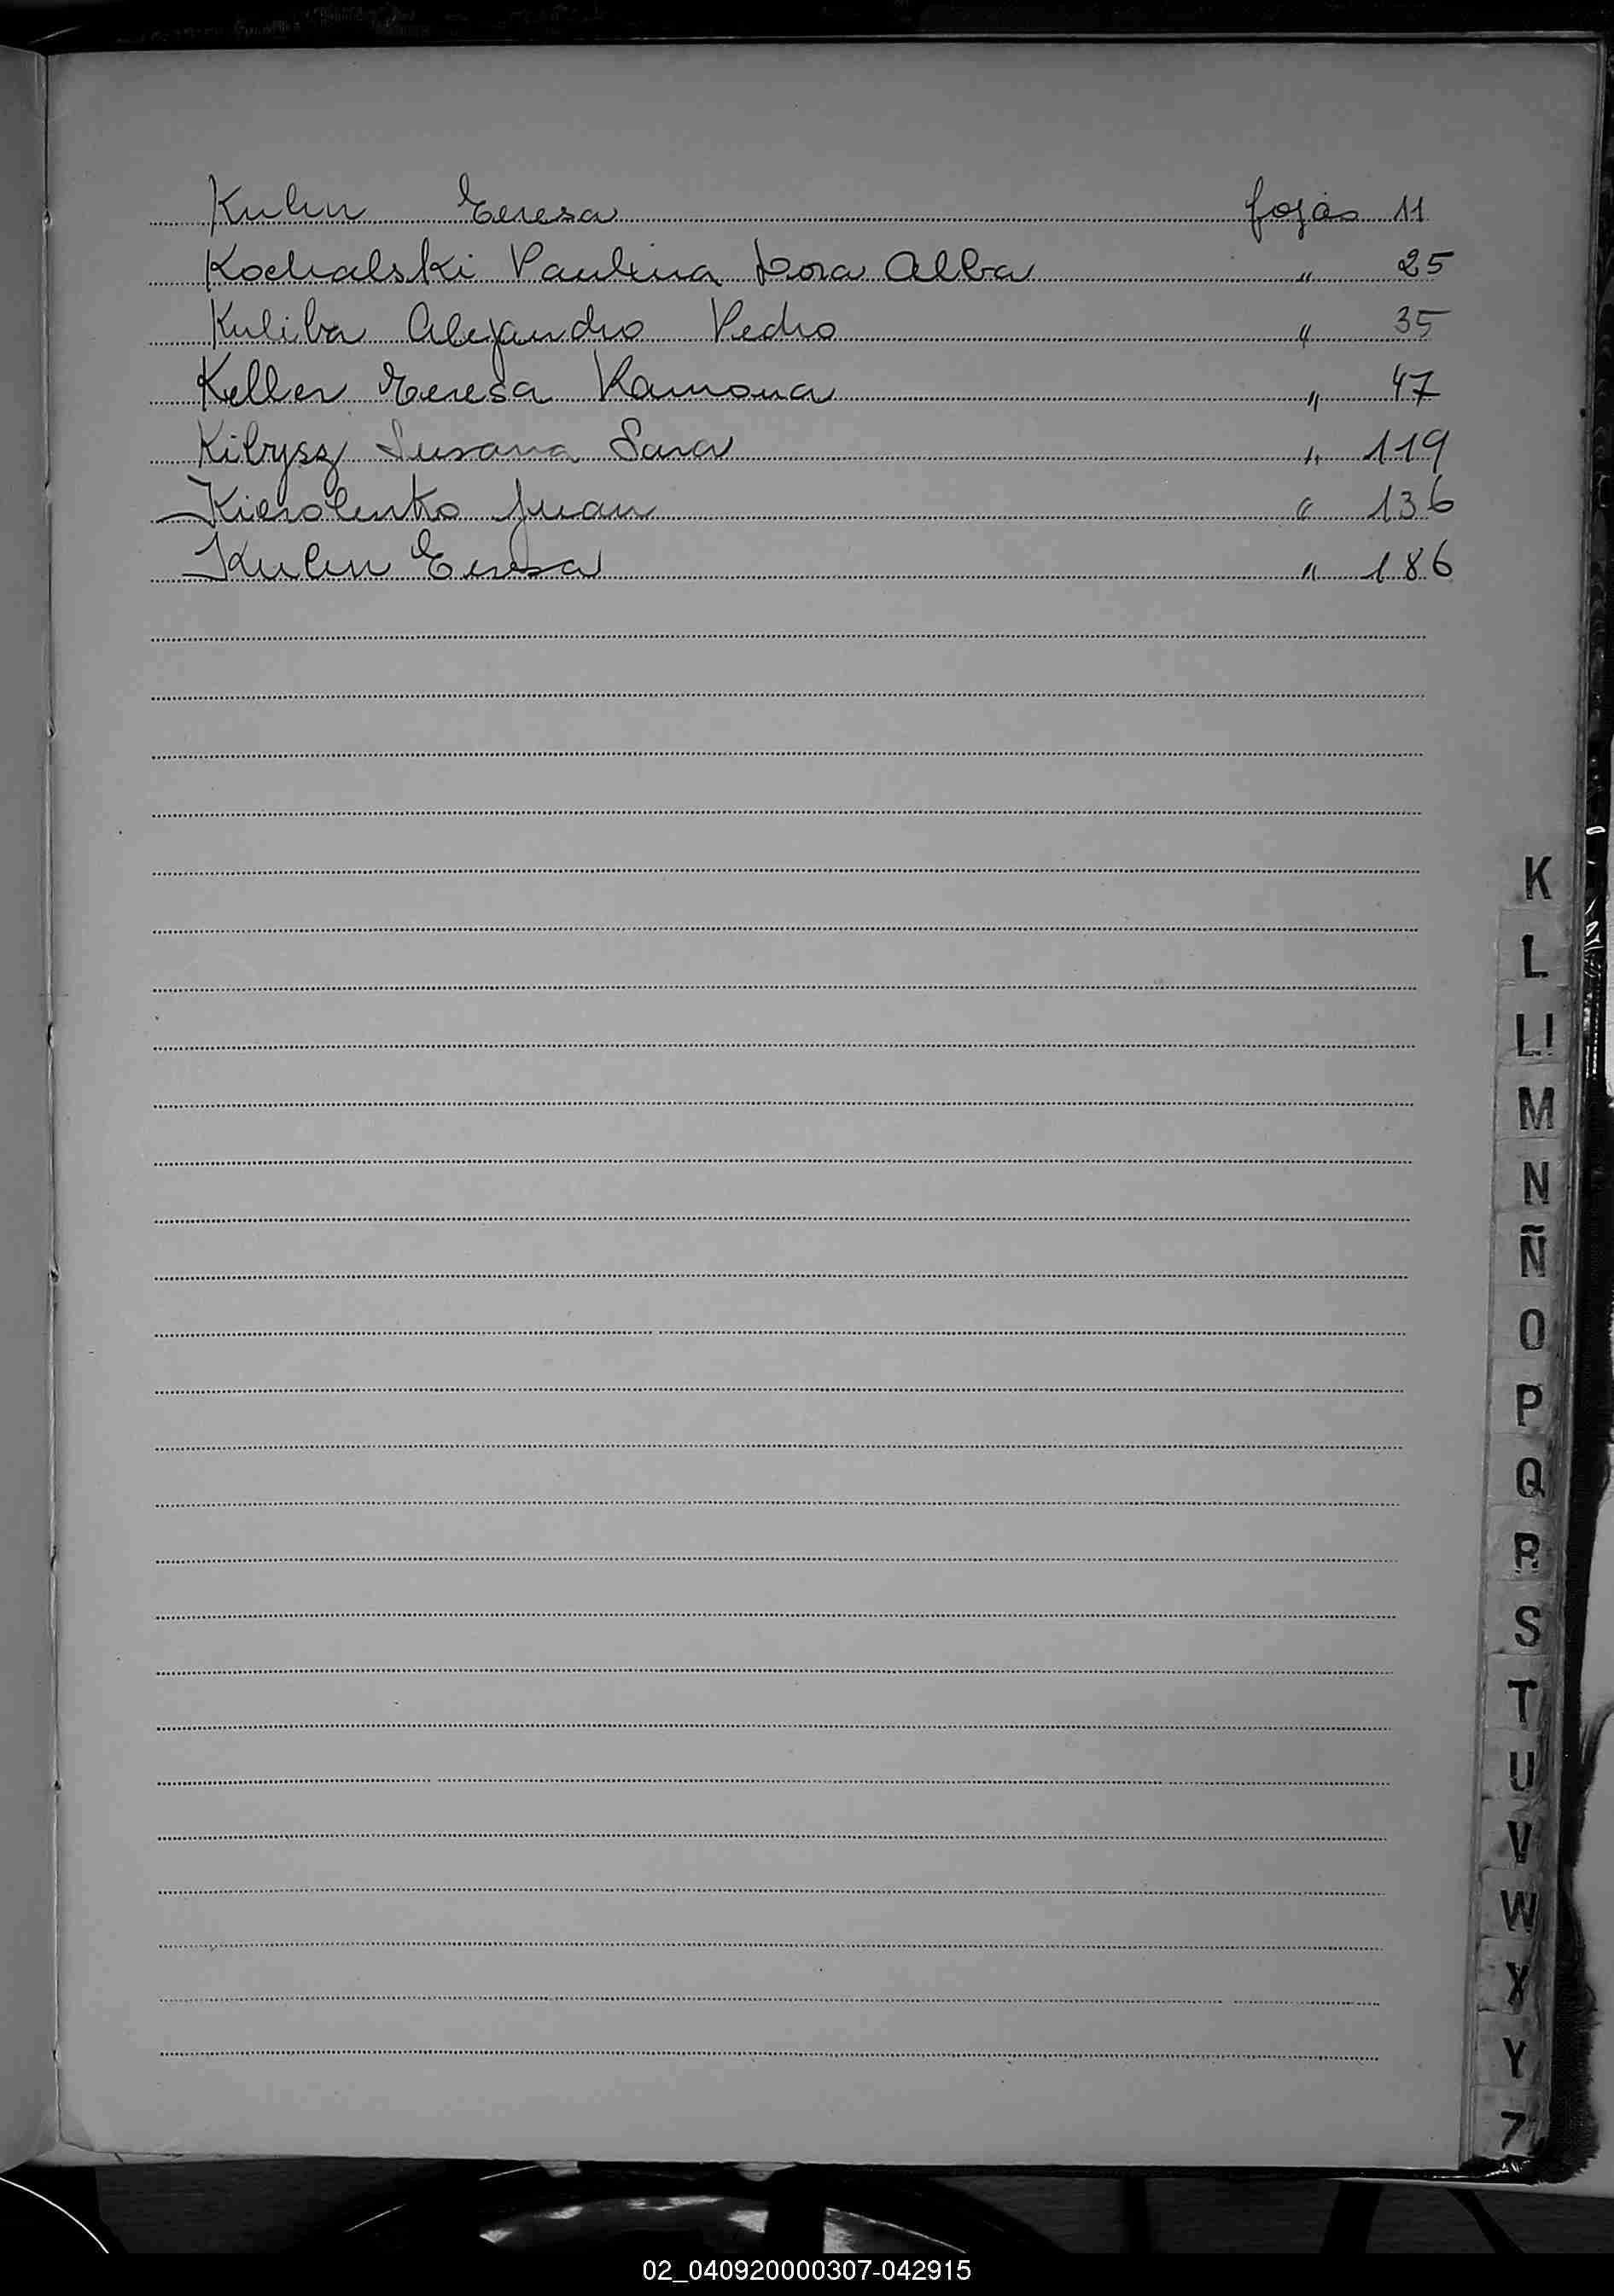 Kuhn Teresa fojas 11
Kochalski Paulina Dora Alba " 25
Kuliba Alejandro Pedro " 35
Keller Teresa Ramona " 47
Kibysz Susana Sara " 119
Kierolenko Juan " 136
Kuhn Teresa " 186
K
L
Ll
M
N
Ñ
O
P
Q
R
S
T
U
V
W
X
Y
Z
02_040920000307-042915